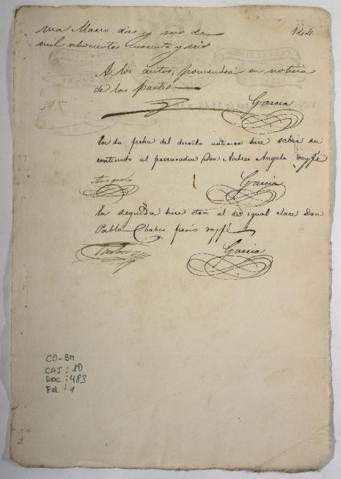 Marzo diez y seis de
mil ochocientos cincuenta y seis
144
A los autos, poniendose en noticia
de las partes
Garcia
En la fecha del decreto anterior hice saber su
contenido al procurador Don Andres Angulo doy fé
Angulo
Garcia
En seguida hice otra al de igual clase Don
Pablo firmó doy fé
Garcia
CO-BM
CAJ: 10
DOC: 483
Fol: 1